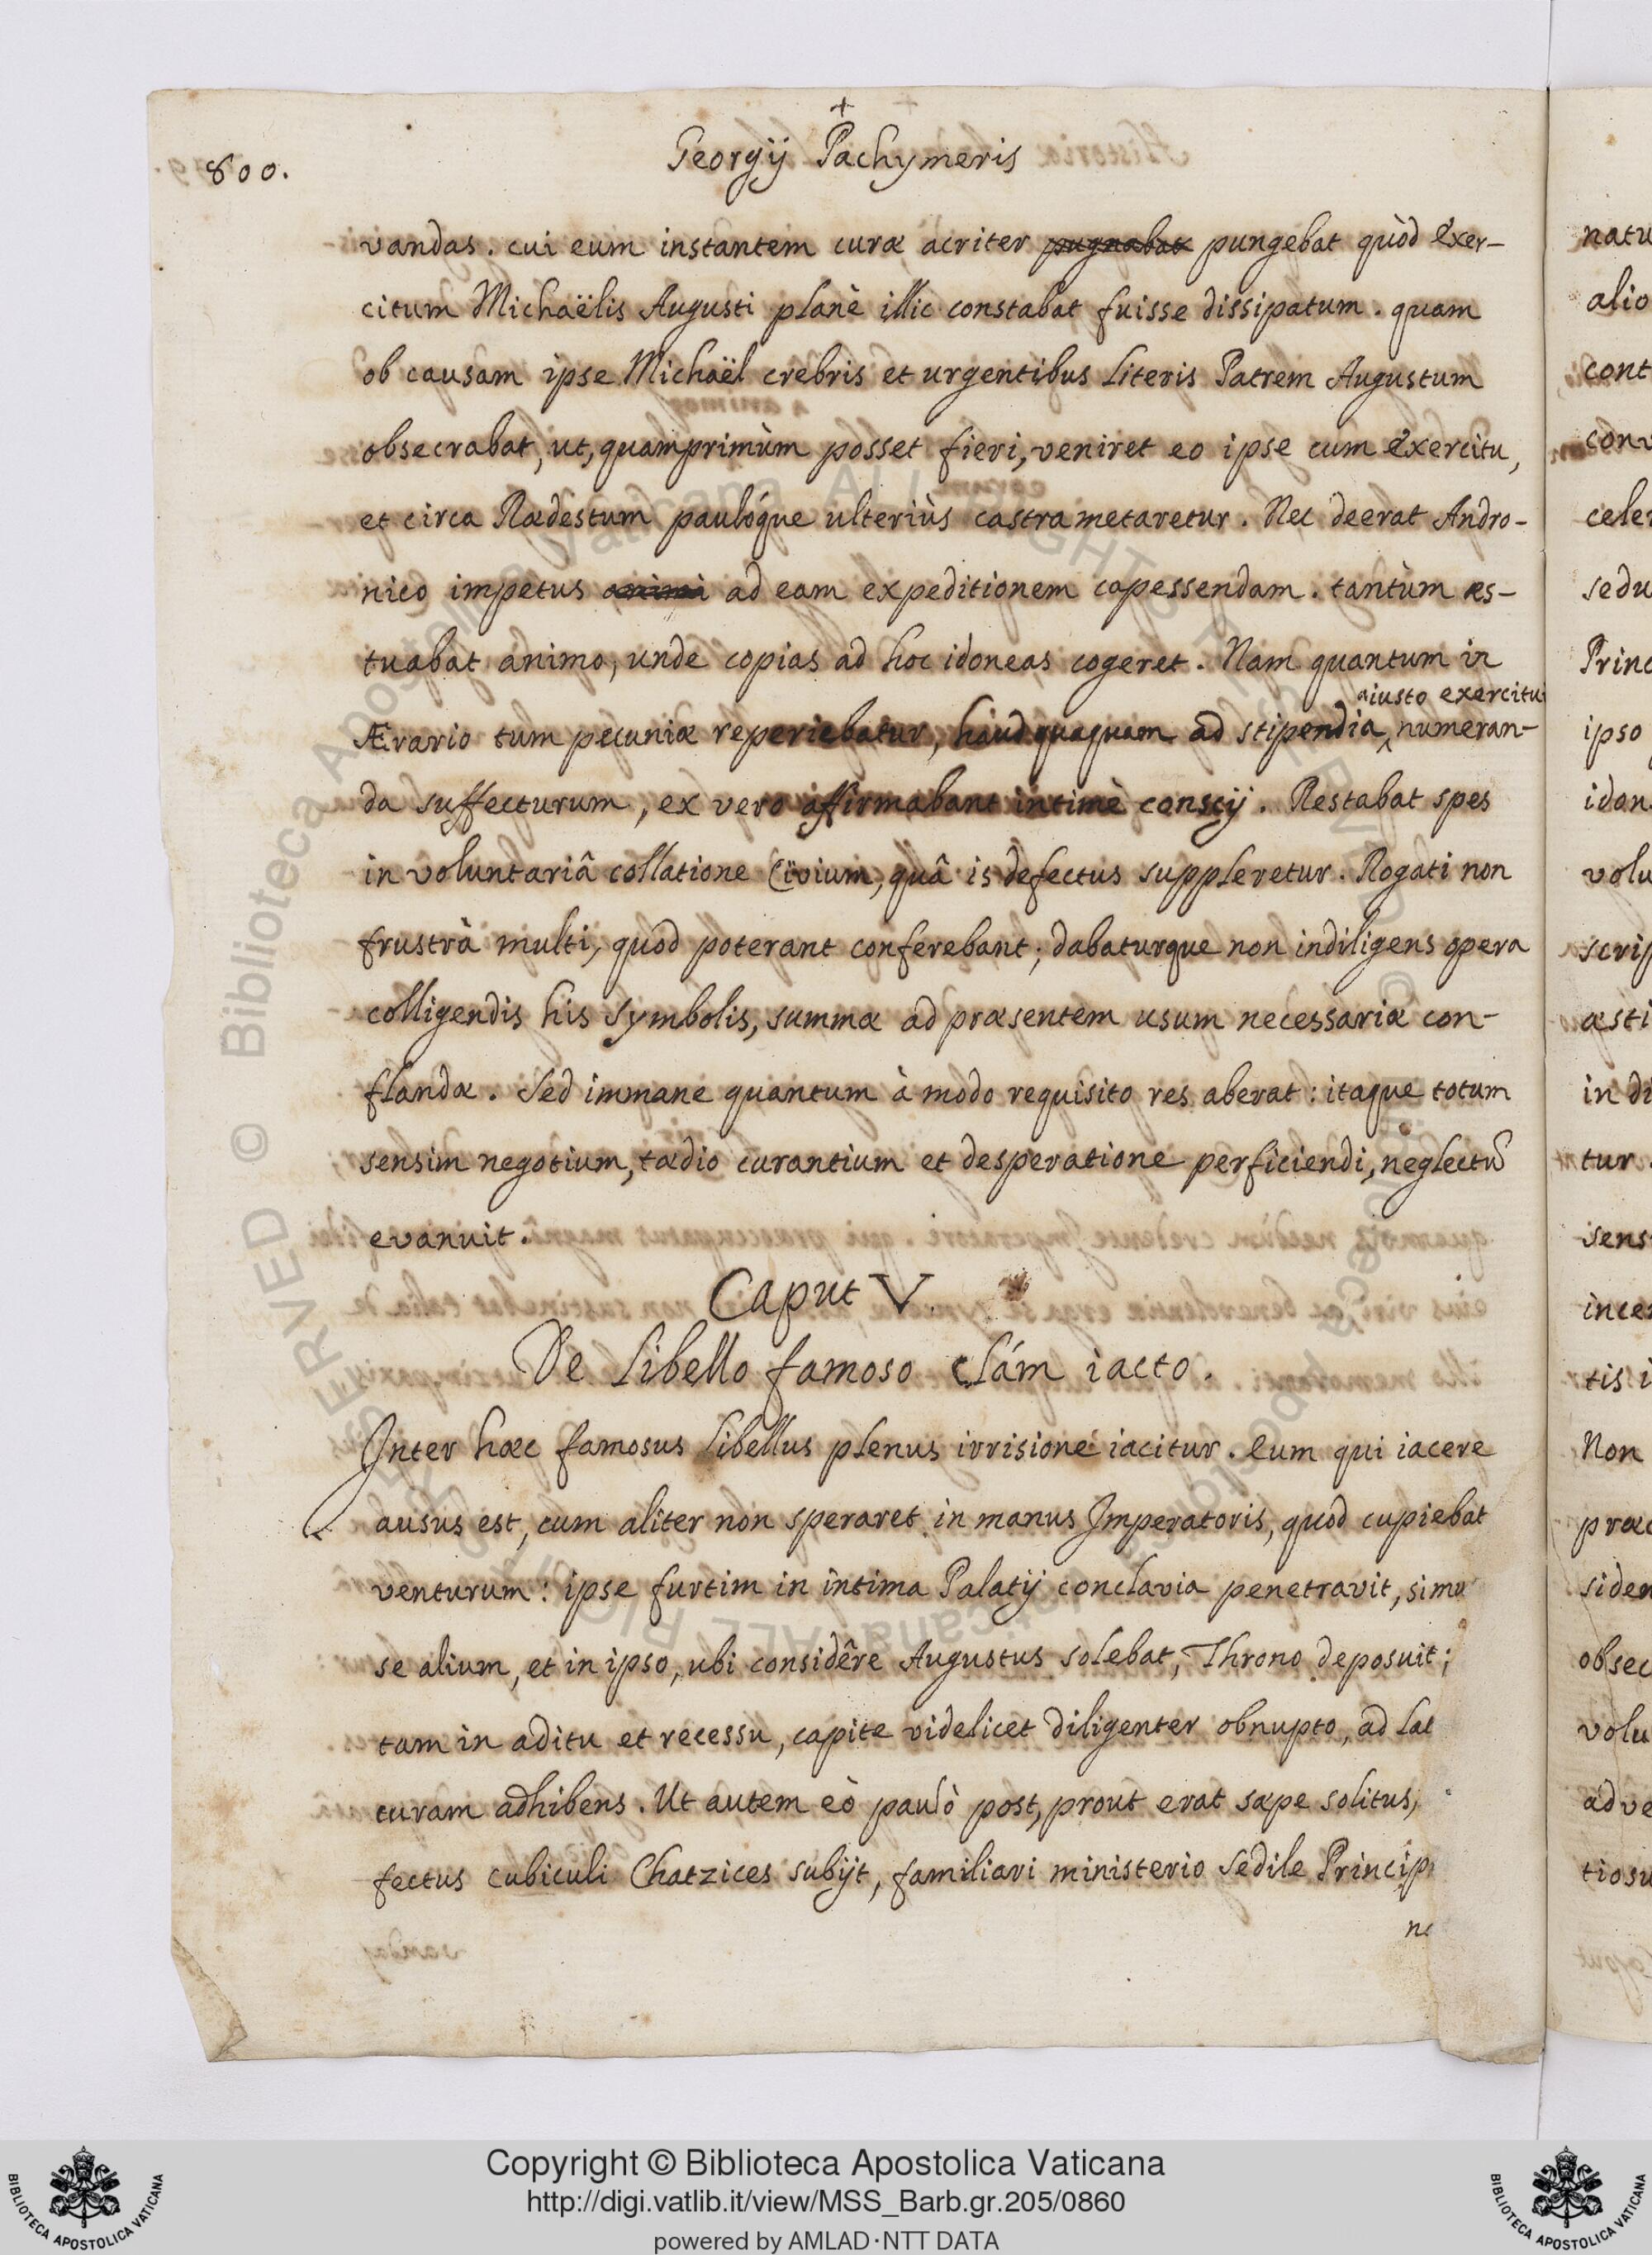 +
800.
Georgij Pachymeris
vandas. cui eum instantem curæ acriter pungebat quòd Exer-
citum Michaëlis Augusti planè illic constabat fuisse dissipatum. quam
ob causam ipse Michaël crebris et urgentibus Literis Patrem Augustum
obsecrabat, ut, quamprimùm posset fieri, veniret eo ipse cum Exercitu,
et circa Rædestum paulóque ulteriùs castrametaretur. Nec deerat Andro-
nico impetus animi ad eam expeditionem capessendam. tantùm æs-
tuabat animo, unde copias ad hoc idoneas cogeret. Nam quantum in
iusto exercitui
Ærario tum pecuniæ reperiebatur, haudquaquam ad stipendia numeran-
da suffecturum, ex vero affirmabant intimè conscij. Restabat spes
in voluntariâ collatione Civium, quâ is defectus suppleretur. Rogati non
frustrà multi, quod poterant conferebant; dabaturque non indiligens opera
colligendis his symbolis, summæ ad præsentem usum necessariæ con-
flandæ. Sed immane quantum à modo requisito res aberat: itaque totum
sensim negotium, tædio curantium et desperatione perficiendi, neglectũ
evanuit.
Caput V.
De Libello famoso clám iacto.
Inter hæc famosus Libellus plenus irrisione iacitur. Eum qui iacere
ausus est, cum aliter non speraret in manus Imperatoris, quod cupiebat
venturum: ipse furtim in intima Palatij conclavia penetravit, simu
se alium, et in ipso, ubi considêre Augustus solebat, Throno deposuit;
tam in aditu et recessu, capite videlicet diligenter obnupto, ad lat
curam adhibens. Ut autem eò paulò post, prout erat sæpe solitus,
fectus cubiculi Chatzices subijt, familiari ministerio Sedile Princip
ne
natu
alio
cont
conv
celer
sedu
Princ
ipso
idon
volu
scrip
æsti
in di
tur.
sens
inces
tis i
Non
præc
siden
obsec
volu
adve
tiosu
Copyright © Biblioteca Apostolica Vaticana
http://digi.vatlib.it/view/MSS_Barb.gr.205/0860
powered by AMLAD·NTT DATA
BIBLIOTECA APOSTOLICA VATICANA
BIBLIOTECA APOSTOLICA VATICANA